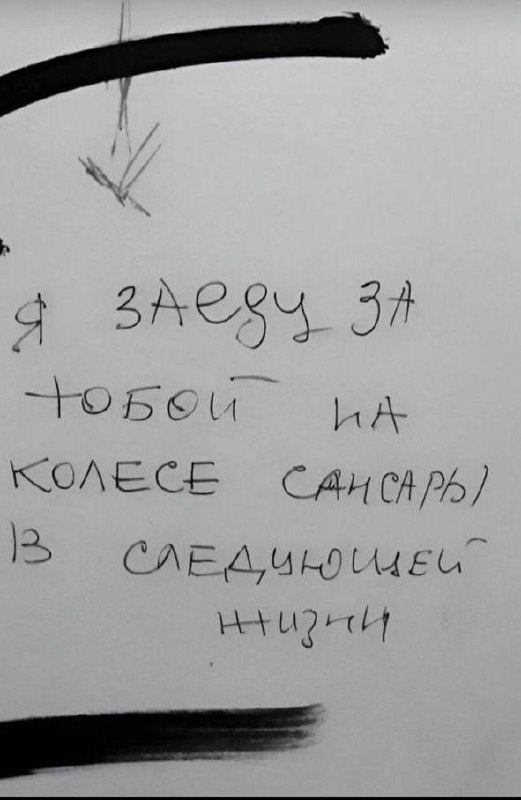 Я ЗАеду ЗА
ТОБОЙ НА
КОЛЕСЕ САНСАРЫ
В СЛЕДУЮЩЕЙ
ЖИЗНИ